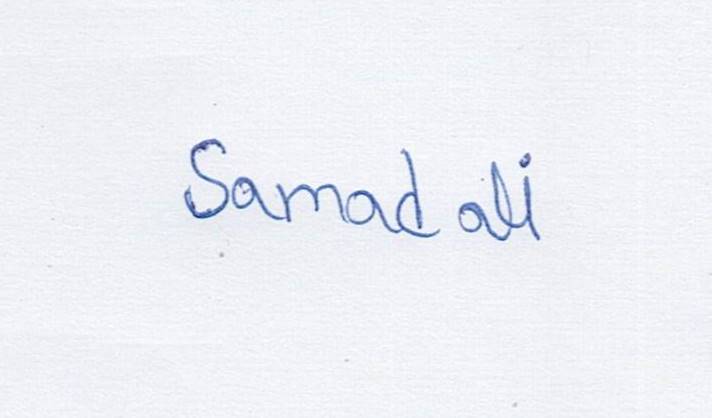 Samad ali